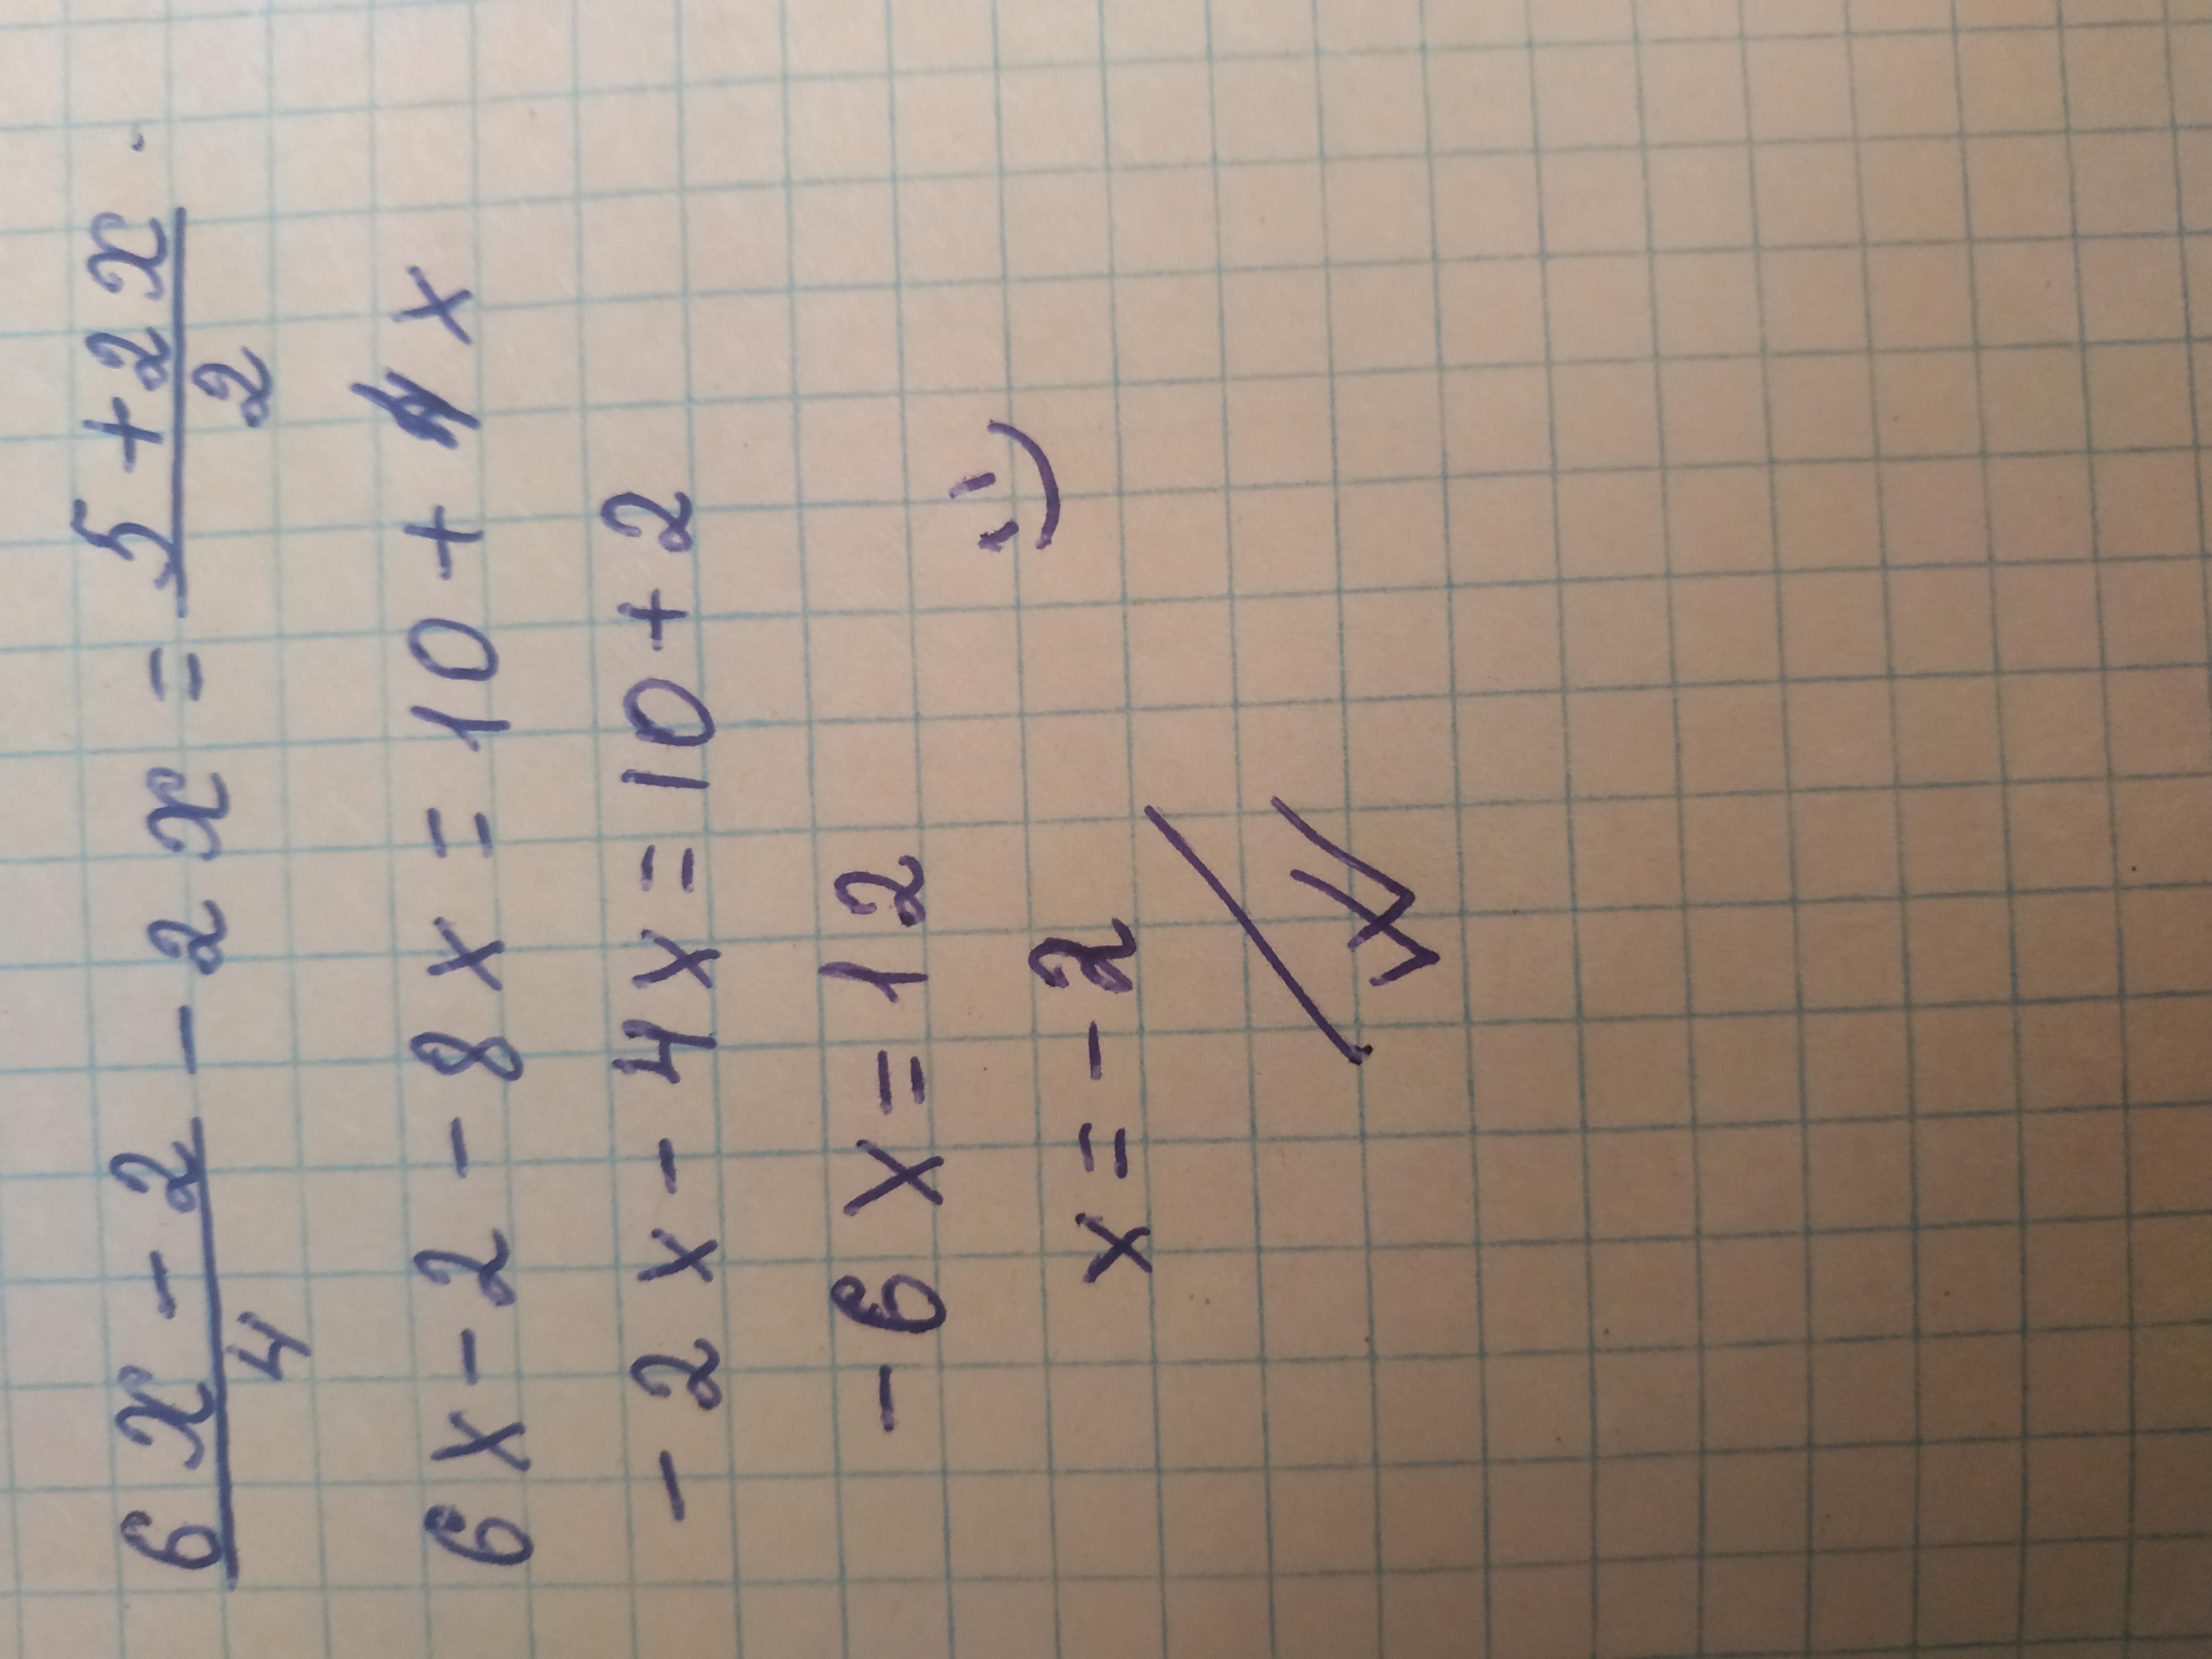 6x - 2 / 4 - 2x = 5 + 2x / 2
6x - 2 - 8x = 10 + 4x
-2x - 4x = 10 + 2
-6x = 12
x = -2